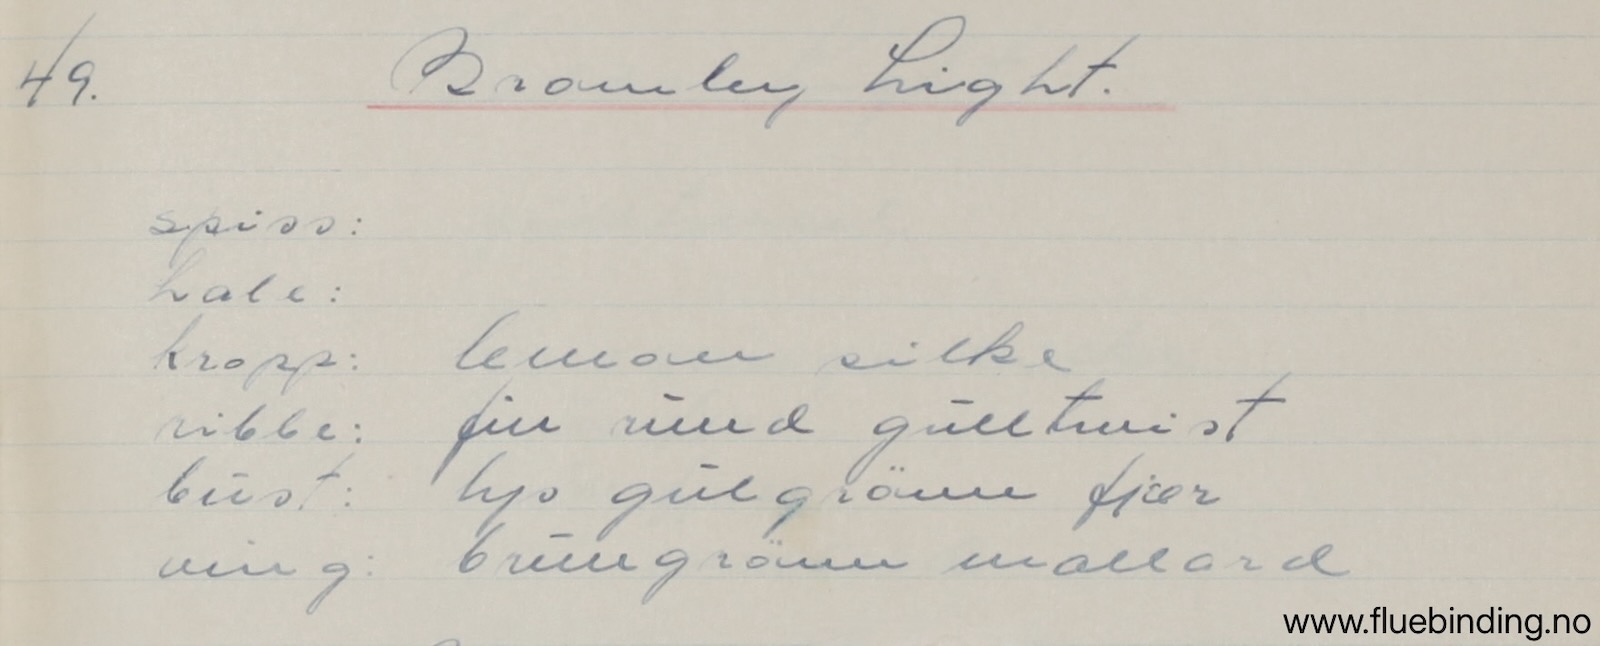 49. Bromley Light.
spiss:
hale:
kropp: lemon silke
ribbe: fin rund gulltwist
bust: lys gulgrönn fjær
ving: brungrönn mallard
www.fluebinding.no